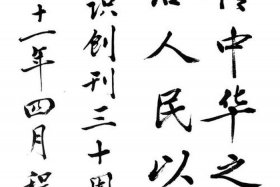 中华之
人民以
识创刊三十周
十一年四月程